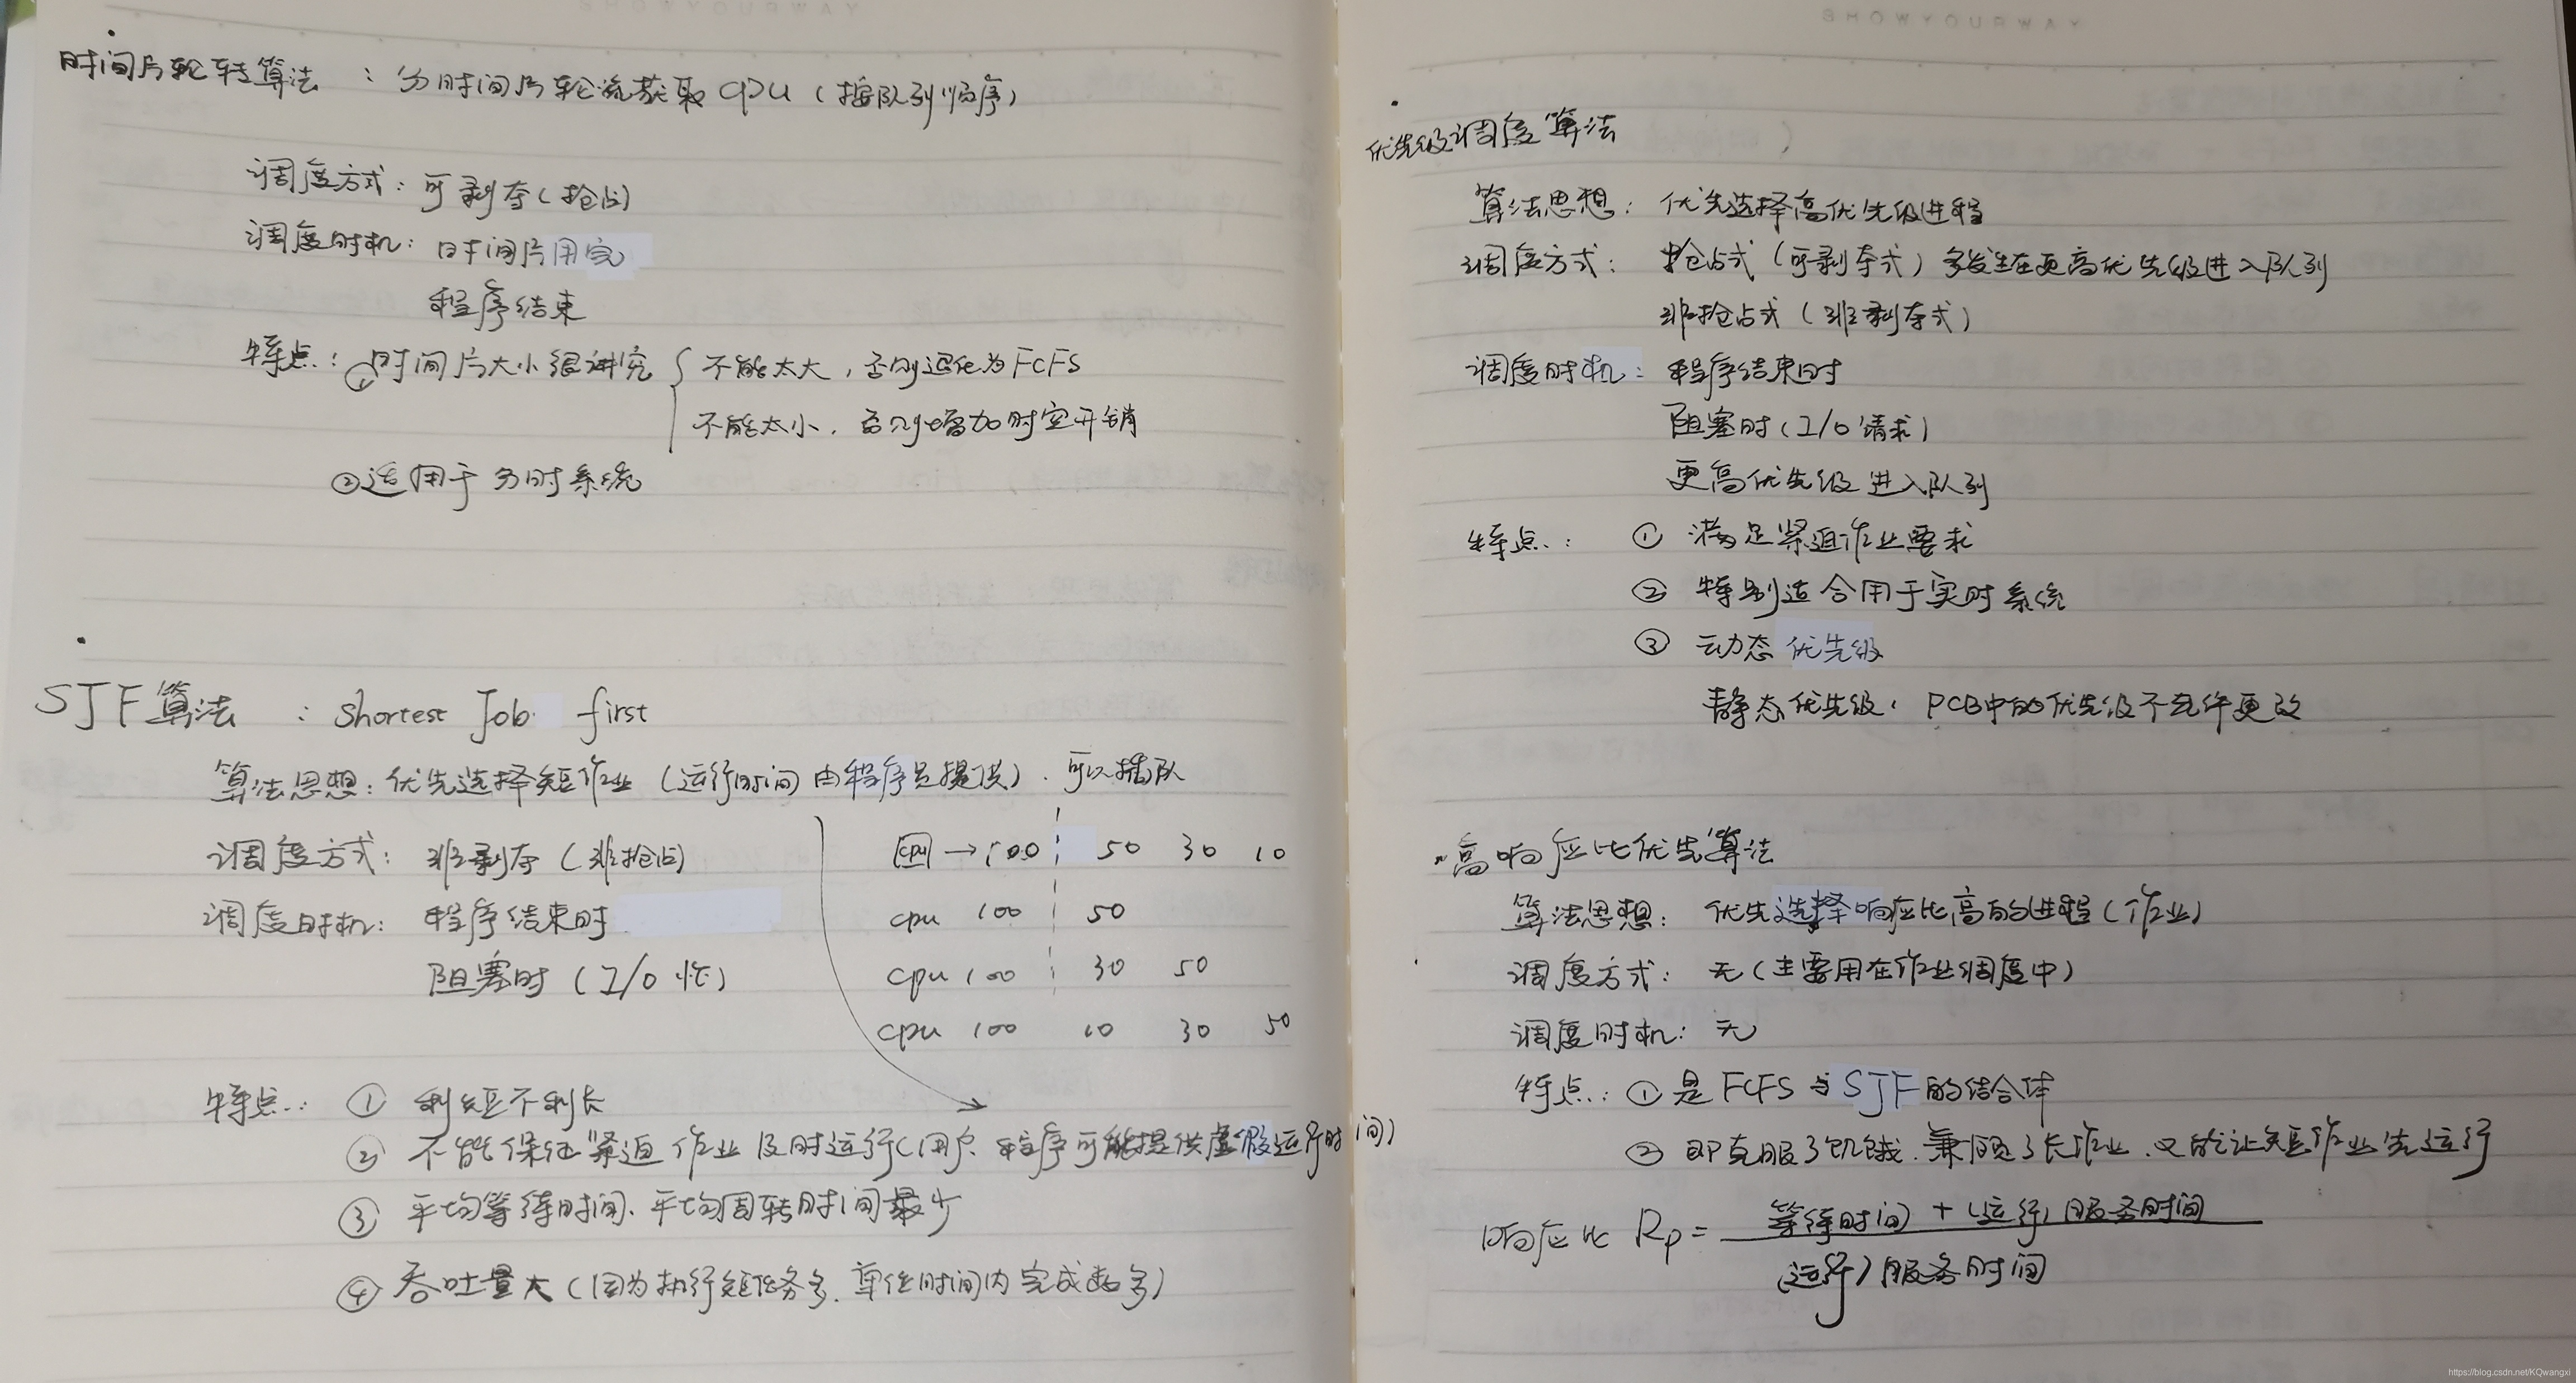 时间片轮转算法 : 分时间片轮流获取 CPU (按队列顺序)
调度方式: 可剥夺(抢占)
调度时机: 时间片用完
程序结束
特点: ① 时间片大小很讲究 { 不能太大, 否则退化为FCFS
不能太小, 否则增加时空开销
②适用于分时系统
SJF算法 : Shortest Job first
算法思想: 优先选择短作业 (运行时间由程序员提供). 可以插队
调度方式: 非剥夺 (非抢占)
cpu → 100 50 30 10
调度时机: 程序结束时
cpu 100 50
阻塞时 (I/O 忙)
cpu 100 30 50
cpu 100 10 30 50
特点: ① 利短不利长
② 不能保证紧迫作业及时运行(用户程序可能提供虚假运行时间)
③ 平均等待时间、平均周转时间最少
④ 吞吐量大 (因为执行短任务多. 单位时间内完成数多)
SHOWYOURWAY
优先级调度算法
算法思想: 优先选择高优先级进程
调度方式: 抢占式 (可剥夺式) 多发生在更高优先级进入队列
非抢占式 (非剥夺式)
调度时机: 程序结束时
阻塞时 (I/O 请求)
更高优先级进入队列
特点: ① 满足紧迫作业要求
② 特别适合用于实时系统
③ 动态优先级
静态优先级, PCB中的优先级不允许更改
高响应比优先算法
算法思想: 优先选择响应比高的进程(作业)
调度方式: 无(主要用在作业调度中)
调度时机: 无
特点: ① 是FCFS与SJF的结合体
② 即克服了饥饿. 兼顾了长作业. 又能让短作业先运行
响应比 Rp = 等待时间 + (运行)服务时间
(运行)服务时间
https://blog.csdn.net/KQwangxi